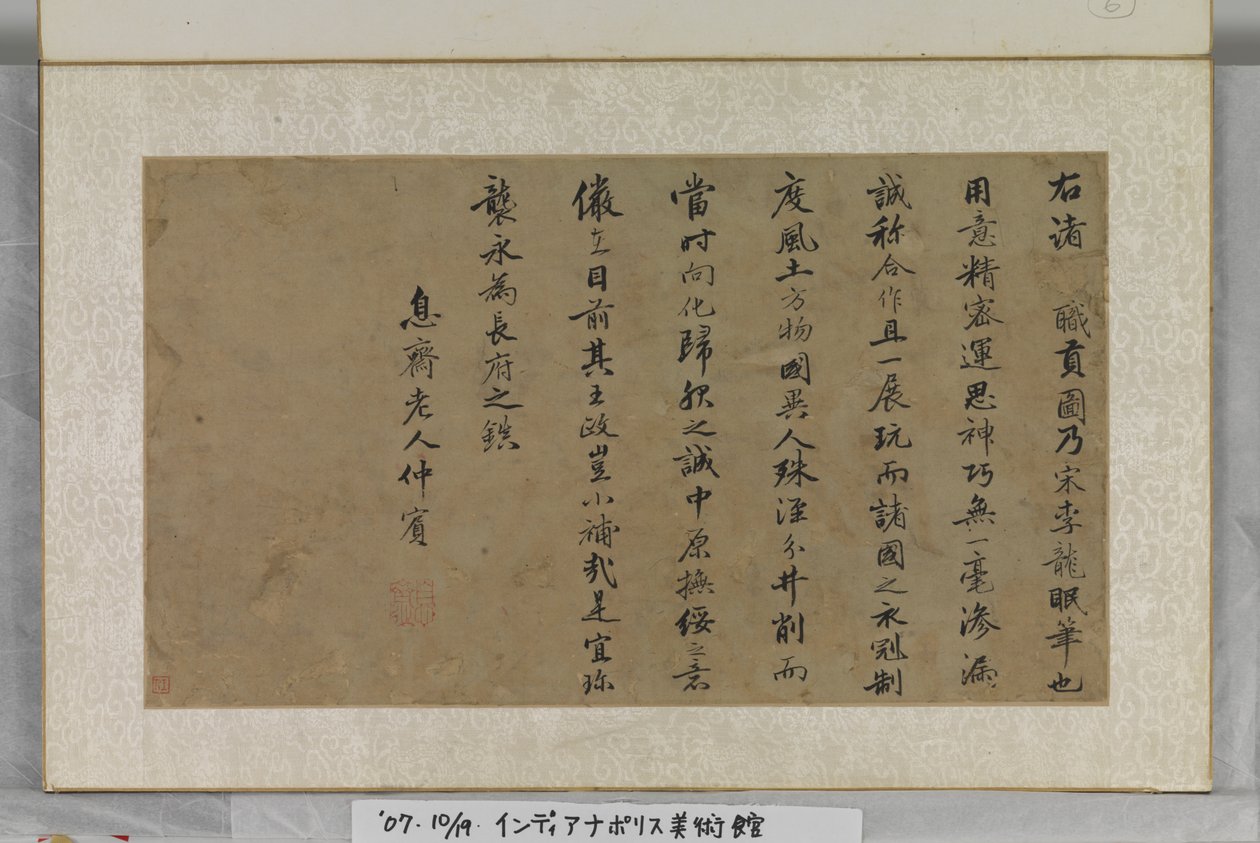 右诸 職貢圖乃宋李龍眠筆也
用意精密運思神巧無一毫渗漏
誠称合作且一展玩而諸國之衣冠制
度風土方物國異人殊涇分井削而
當时向化歸服之誠中原撫綏之意
儼在目前其王政豈小補哉是宜珎
襲永為長府之鎮
息齋老人仲賓
'07. 10/19. インディアナポリス美術館
6